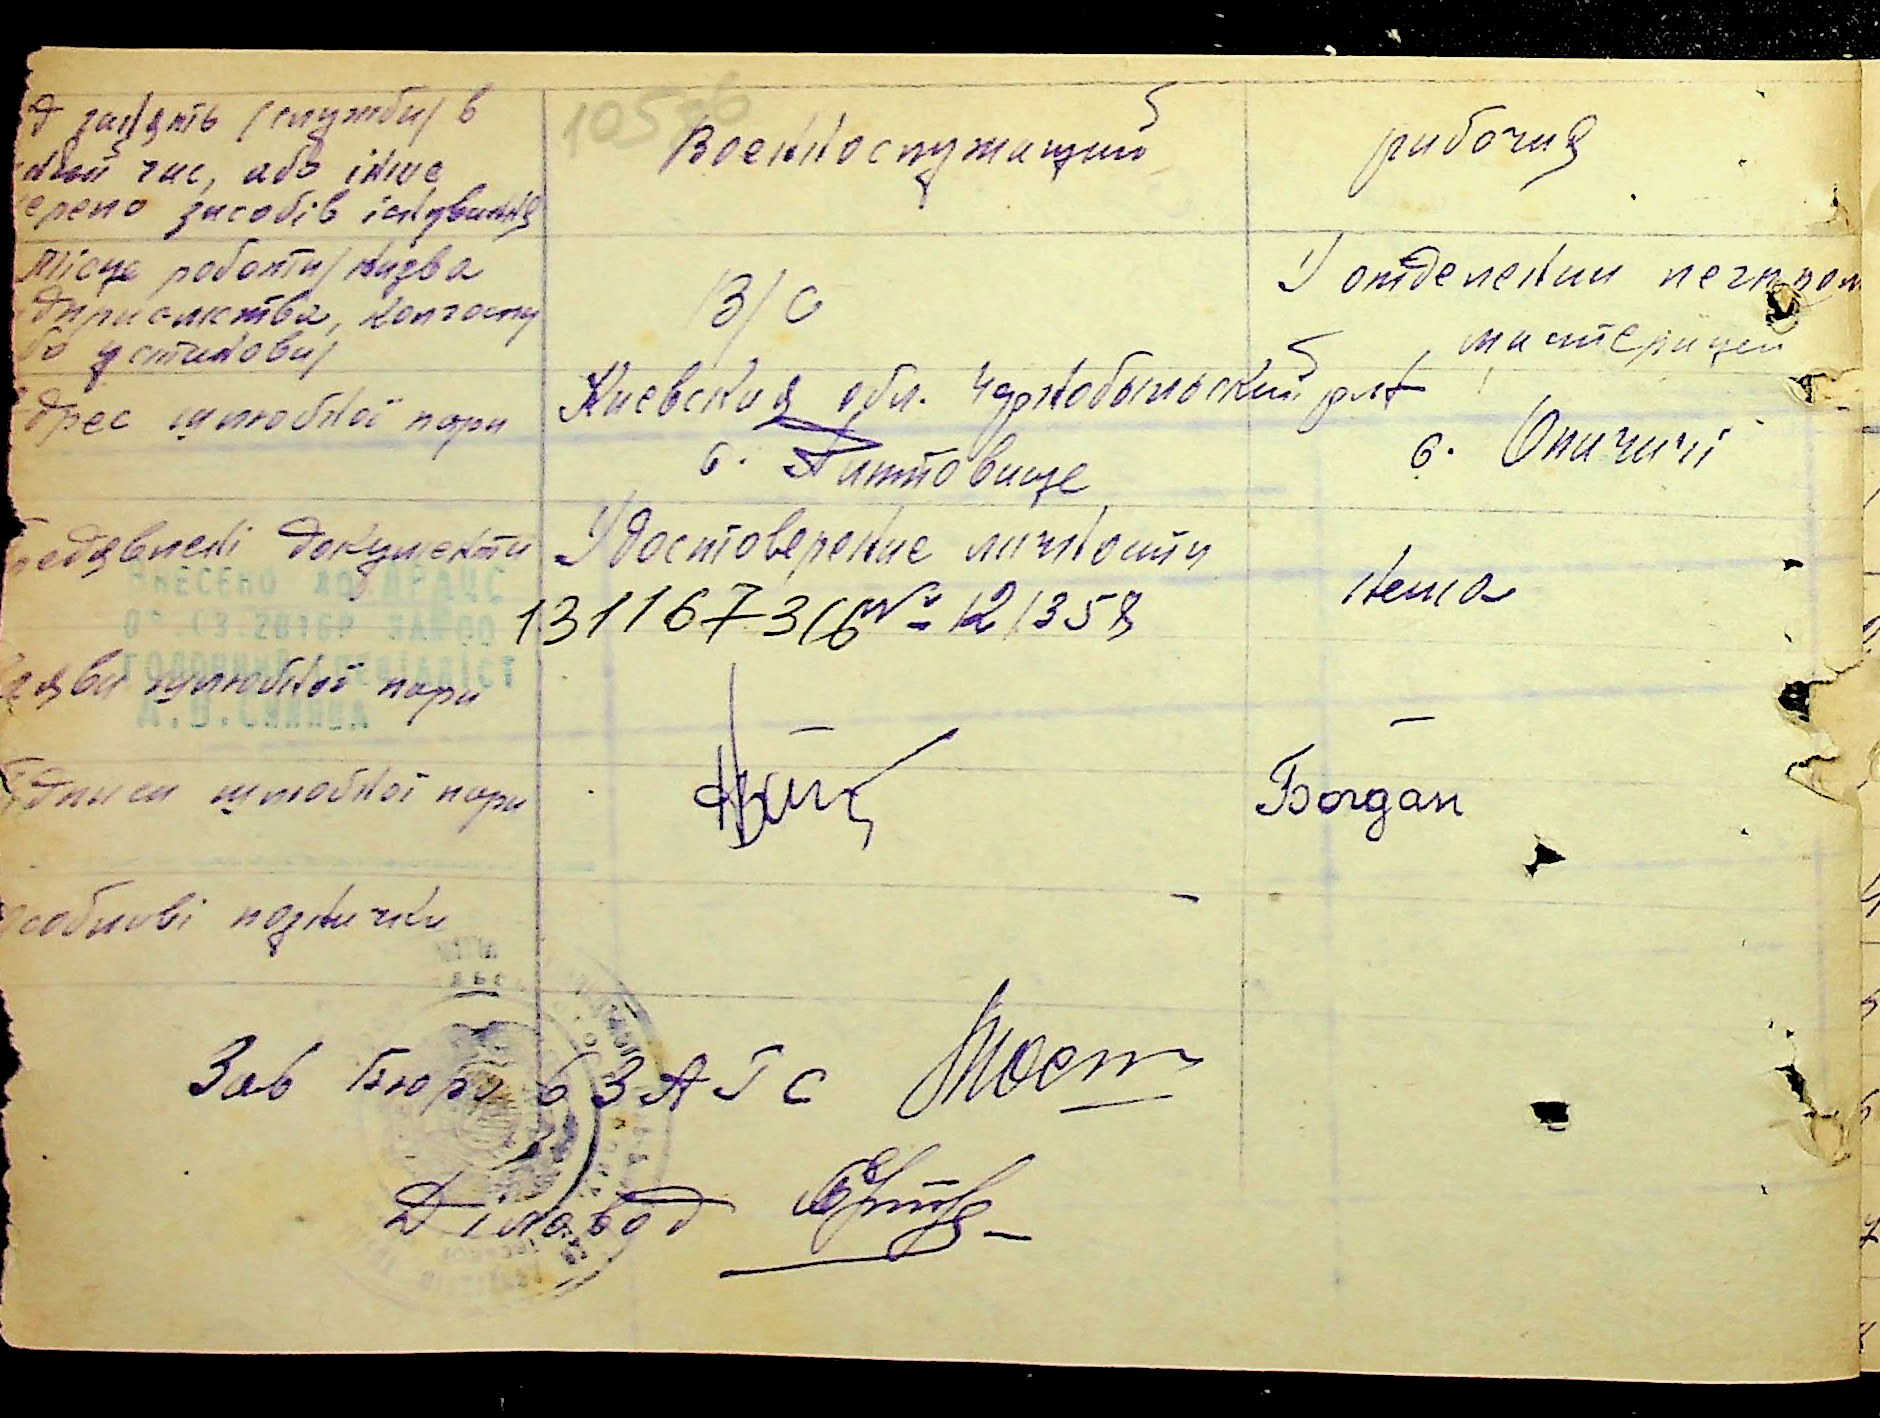 д занять /служби/ в
який час, або інше
ерело засобів існування
10576
Военнослужащий
рабочая
Місце роботи/ назва
дприємства, колгоспу
бо установи/
В/С
У отделении
мастерицей
дрес шлюбної пари
Киевская обл. Чернобыльский р-н
с.
с. Опачичі
редявлені документи
Удостоверение личности
№ 121358
нема
ВНЕСЕНО ДО ДРАЦС
ГОЛОВНИЙ СПЕЦІАЛІСТ
аяви шлюбної пари
—
—
ідписи шлюбної пари
Богдан
особливі познички
—
Зав бюро ЗАГС
Діловод